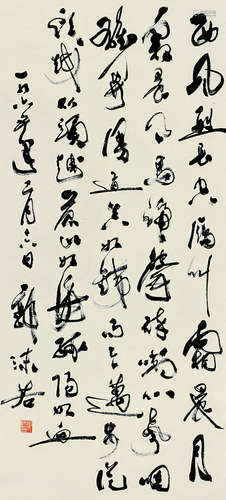 西風烈長空雁叫霜晨月
霜晨月馬蹄聲碎喇叭聲咽
雄關漫道真如鐵而今邁步從
頭越從頭越蒼山如海殘陽如血
一九六年二月六日 郭沫若